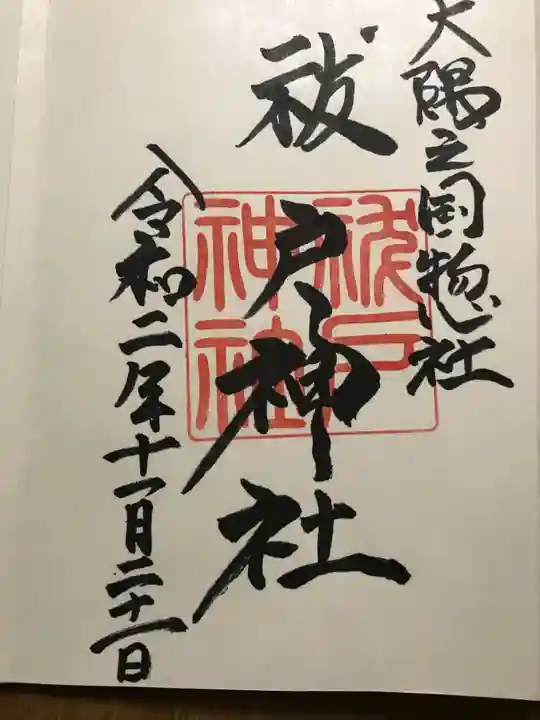 大隅之国惣社
祓戸神社
祓戸
神社
令和二年十一月二十一日